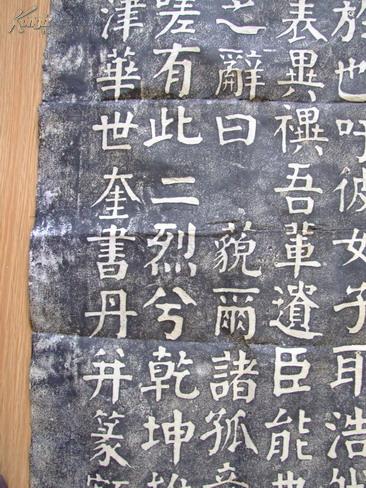 於也吁彼女子耳浩然
表異禩吾輩遺臣能
之辭曰 藐爾諸孤
嗟有此二烈兮乾坤
津華世奎書丹并篆額